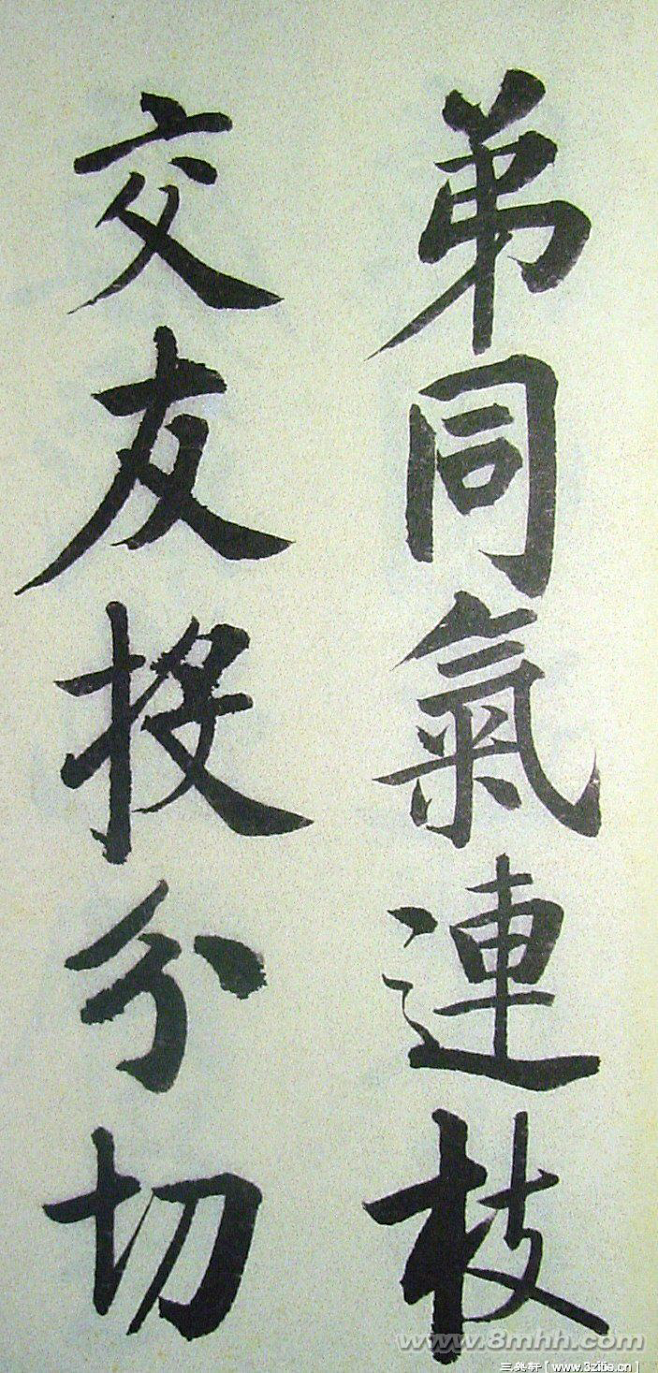 弟同氣連枝
交友投分切
www.8mhh.com
三羌軒[www.3zitie.cn]